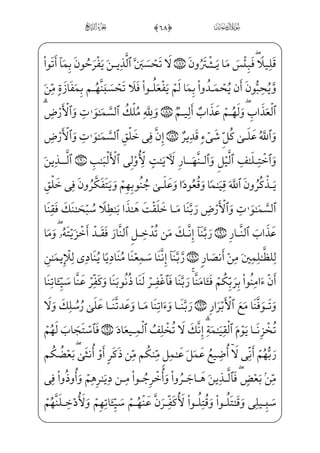 الجزء الرابع ﴿٦٨﴾ سورة آل عمران
قَلِيلًا ۖ فَبِئْسَ مَا يَشْتَرُونَ ١٨٧ لَا تَحْسَبَنَّ ٱلَّذِينَ يَفْرَحُونَ بِمَآ أَتَوا۟
وَّيُحِبُّونَ أَن يُحْمَدُوا۟ بِمَا لَمْ يَفْعَلُوا۟ فَلَا تَحْسَبَنَّهُم بِمَفَازَةٍ مِّنَ
ٱلْعَذَابِ ۖ وَلَهُمْ عَذَابٌ أَلِيمٌ ١٨٨ وَلِلَّهِ مُلْكُ ٱلسَّمَـٰوَٰتِ وَٱلْأَرْضِ ۗ
وَٱللَّهُ عَلَىٰ كُلِّ شَىْءٍ قَدِيرٌ ١٨٩ إِنَّ فِى خَلْقِ ٱلسَّمَـٰوَٰتِ وَٱلْأَرْضِ
وَٱخْتِلَـٰفِ ٱلَّيْلِ وَٱلنَّهَارِ لَـَٔايَـٰتٍ لِّأُو۟لِى ٱلْأَلْبَـٰبِ ١٩٠ ٱلَّذِينَ
يَذْكُرُونَ ٱللَّهَ قِيَـٰمًا وَقُعُودًا وَعَلَىٰ جُنُوبِهِمْ وَيَتَفَكَّرُونَ فِى خَلْقِ
ٱلسَّمَـٰوَٰتِ وَٱلْأَرْضِ رَبَّنَا مَا خَلَقْتَ هَـٰذَا بَـٰطِلًا سُبْحَـٰنَكَ فَقِنَا
عَذَابَ ٱلنَّارِ ١٩١ رَبَّنَآ إِنَّكَ مَن تُدْخِلِ ٱلنَّارَ فَقَدْ أَخْزَيْتَهُۥ ۖ وَمَا
لِلظَّـٰلِمِينَ مِنْ أَنصَارٍ ١٩٢ رَّبَّنَآ إِنَّنَا سَمِعْنَا مُنَادِيًا يُنَادِى لِلْإِيمَـٰنِ
أَنْ ءَامِنُوا۟ بِرَبِّكُمْ فَـَٔامَنَّا ۚ رَبَّنَا فَٱغْفِرْ لَنَا ذُنُوبَنَا وَكَفِّرْ عَنَّا سَيِّـَٔاتِنَا
وَتَوَفَّنَا مَعَ ٱلْأَبْرَارِ ١٩٣ رَبَّنَا وَءَاتِنَا مَا وَعَدتَّنَا عَلَىٰ رُسُلِكَ وَلَا
تُخْزِنَا يَوْمَ ٱلْقِيَـٰمَةِ ۗ إِنَّكَ لَا تُخْلِفُ ٱلْمِيعَادَ ١٩٤ فَٱسْتَجَابَ لَهُمْ
رَبُّهُمْ أَنِّى لَآ أُضِيعُ عَمَلَ عَـٰمِلٍ مِّنكُم مِّن ذَكَرٍ أَوْ أُنثَىٰ ۖ بَعْضُكُم
مِّنۢ بَعْضٍ ۖ فَٱلَّذِينَ هَاجَرُوا۟ وَأُخْرِجُوا۟ مِن دِيَـٰرِهِمْ وَأُوذُوا۟ فِى
سَبِيلِى وَقَـٰتَلُوا۟ وَقُتِلُوا۟ لَأُكَفِّرَنَّ عَنْهُمْ سَيِّـَٔاتِهِمْ وَلَأُدْخِلَنَّهُمْ